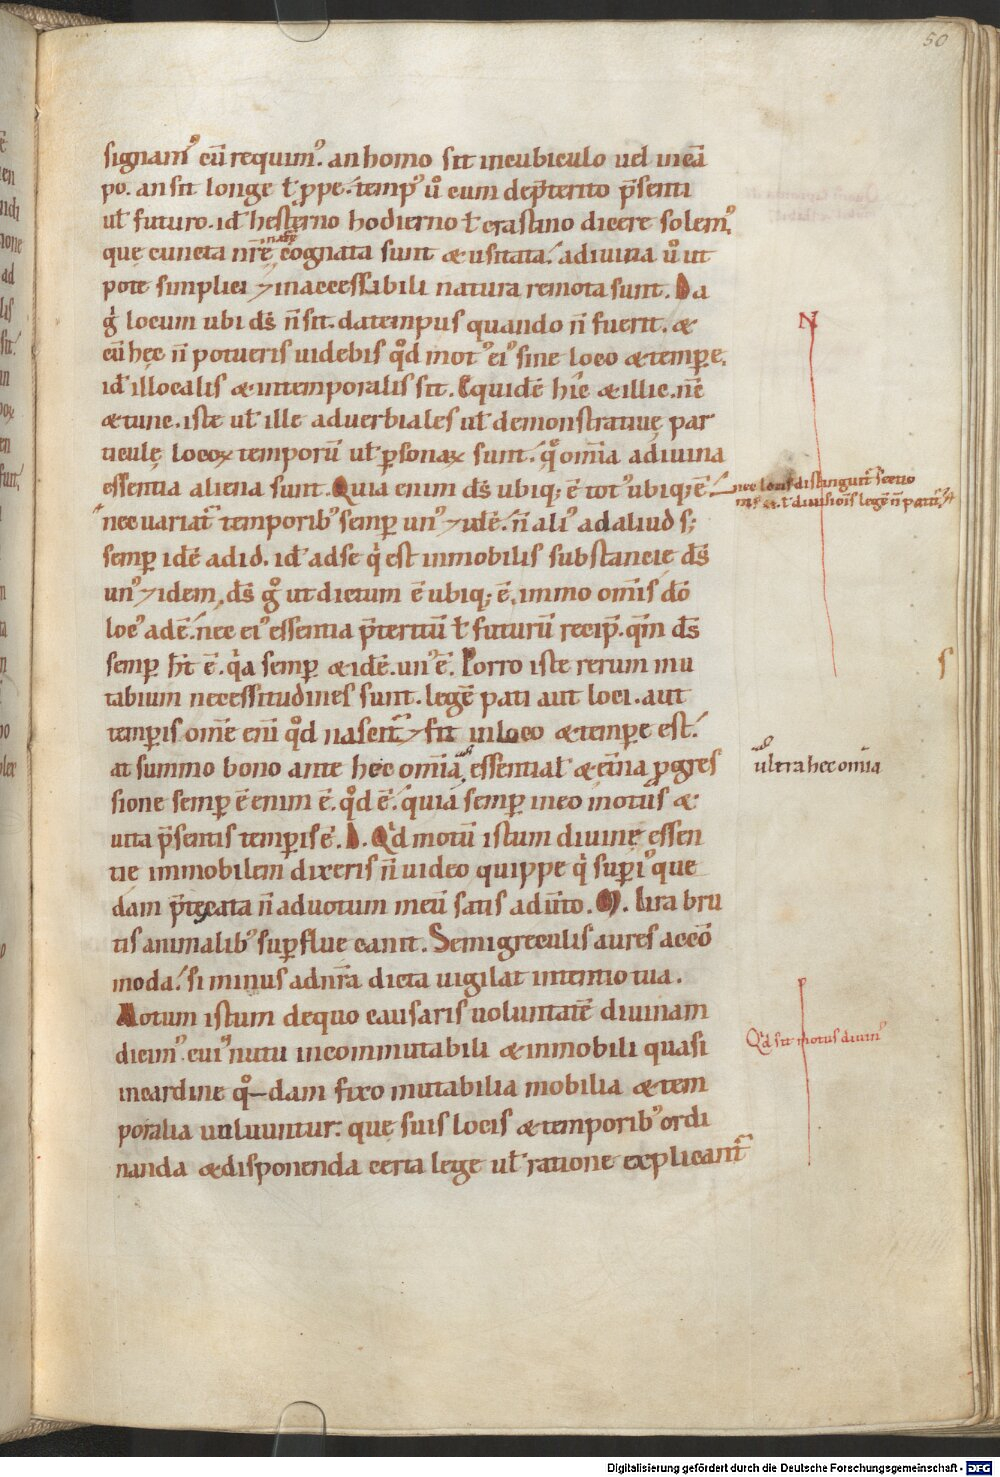 50
signam᷒ cū requim᷒. an homo sit in cubiculo uel in cā
po. an sit longe ł ꝓpe. temp᷒ ů cum dep̄terito p̄senti
uł futuro. id̄ hesterno hodierno ł crastino dicere solem᷒.
natūrę
quę cuncta nr̄ę cognata sunt & usitata. a diuina ů ut
pote simplici ⁊ inaccessibili natura remota sunt. Da
g̊ locum ubi ds̄ n̄ sit. da tempus quando n̄ fuerit. &
cū hęc n̄ potueris uidebis qd̊ mot᷒ ei᷒ sine loco & tempꝑe.
id̄ illocalis & intemporalis sit. Equidē hic & illic. nc̄
& tunc. iste uł ille aduerbiales uł demonstratiuę par
ticulę locoꝝ temporū uł ꝑsonaꝝ sunt. q̊ om̄ia a diuina
essentia aliena sunt. Quia enim ds̄ ubiq; ē tot᷒ ubiq; ē.
nec uariat᷑ temporib᷒ semꝑ un᷒ ⁊ idē. n̄ ali᷒ ad aliud s;
semꝑ idē ad id. id̄ ad se qͥ est inmobilis substancię ds̄
un᷒ ⁊ idem. ds̄ g̊ ut dictum ē ubiq; ē. immo omīs dō
loc᷒ adē. nec ei᷒ essentia p̄teritū ł futurū recip̄. qm̄ ds̄
semꝑ hͥc ē. qͥa semꝑ & idē. un᷒ ē. Porro iste rerum mu
tabium necessitudines sunt. legē pati aut loci. aut
temꝑis om̄e eni qd̊ nascit᷑ ⁊ fit in loco & tempꝑe est.
at summo bono ante hęc om̄ia essentiał & et̄na ꝓgres
sione semꝑ ē enim ē. qd̊ ē. quia semꝑ in eo motus &
uita p̄sentis temꝑis ē. D. Qd̊ motū istum diuinę essen
tię immobilem dixeris n̄ uideo quippe qͥ suꝑi᷒ que
dam p̄tęcata n̄ ad uotum meū satis adūto. M. Lira bru
tis animalib᷒ suꝑflue canit. Semigręculis aures accō
moda. si minus ad nr̄a dicta uigilat intentio tua.
Motum istum de quo causaris uoluntatē diuinam
dicim᷒. cui᷒ nutu incommutabili & inmobili quasi
in cardine q̊dam fixo mutabilia mobilia & tem
poralia uoluuntur. quę suis locis & temporib᷒ ordi
nanda & disponenda certa lege uł ratione explicant᷑
N
nec locis distinguit᷑ s
ł diuisiōis legē n̄ patit᷑
ultra hęc om̄ia
Qd̊ sit motus diuin᷒
Digitalisierung gefördert durch die Deutsche Forschungsgemeinschaft - DFG